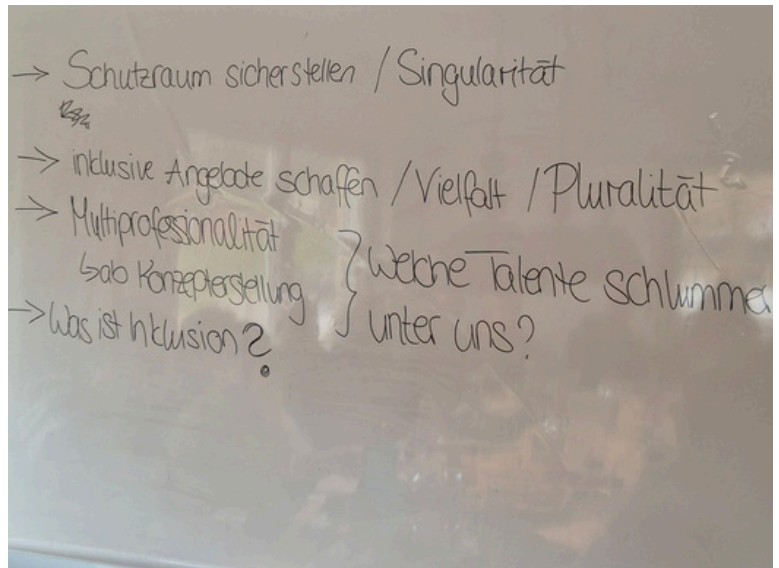 → Schutzraum sicherstellen / Singularität
→ inklusive Angebote schaffen / Vielfalt / Pluralität
→ Multiprofessionalität
↳ ab Konzepterstellung
} Welche Talente schlumme
unter uns?
→ Was ist Inklusion?